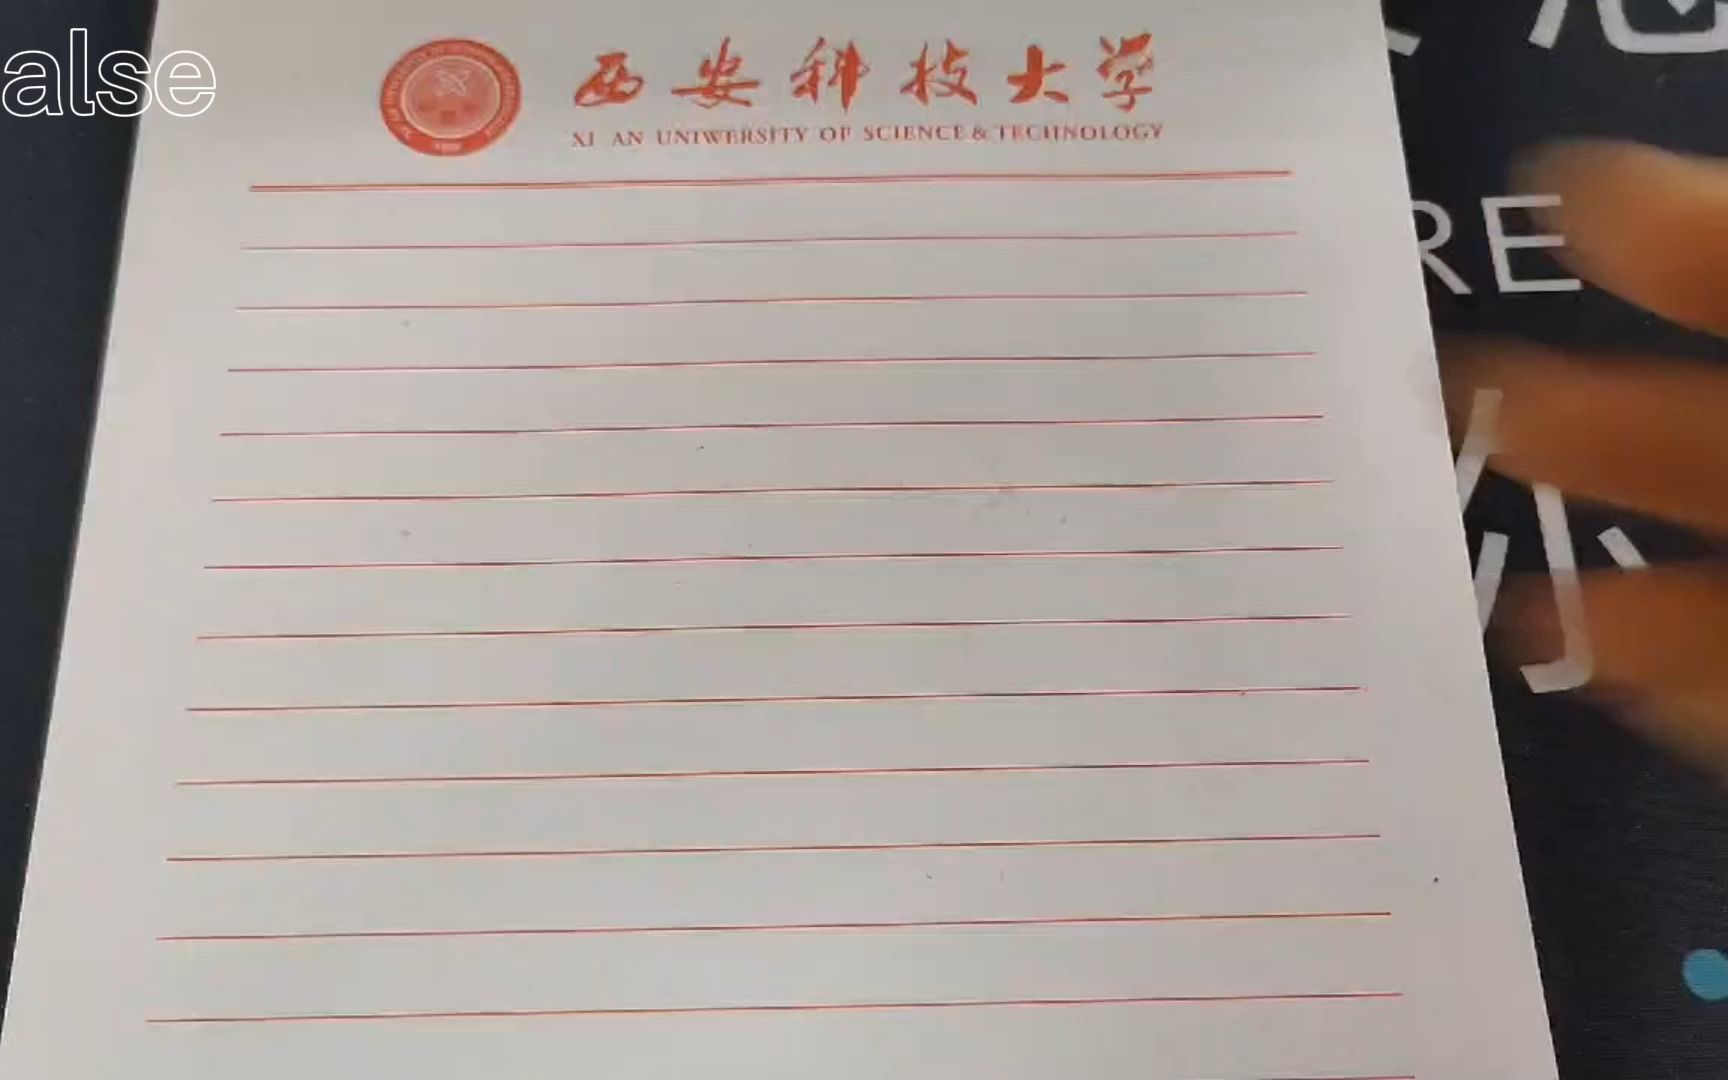 alse
西安科技大学
XI AN UNIWERSITY OF SCIENCE & TECHNOLOGY
RE
小